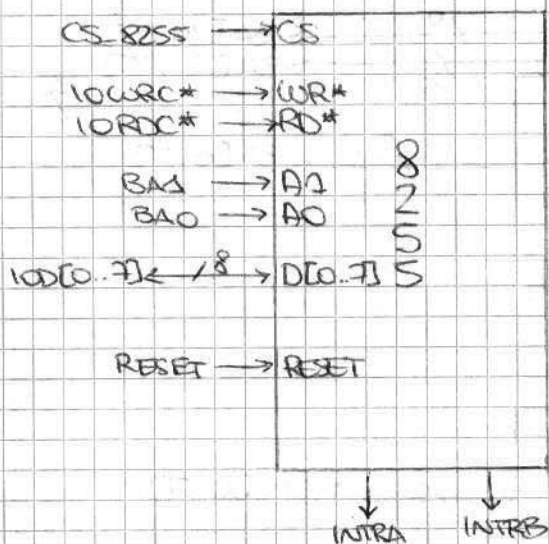 CS_8255 → CS
IOWRC* → WR*
IORDC* → RD*
BA1 → A1
BA0 → A0
IOD[0..7] ↔ /8 D[0..7]
RESET → RESET
8
2
5
5
INTRA INTRB